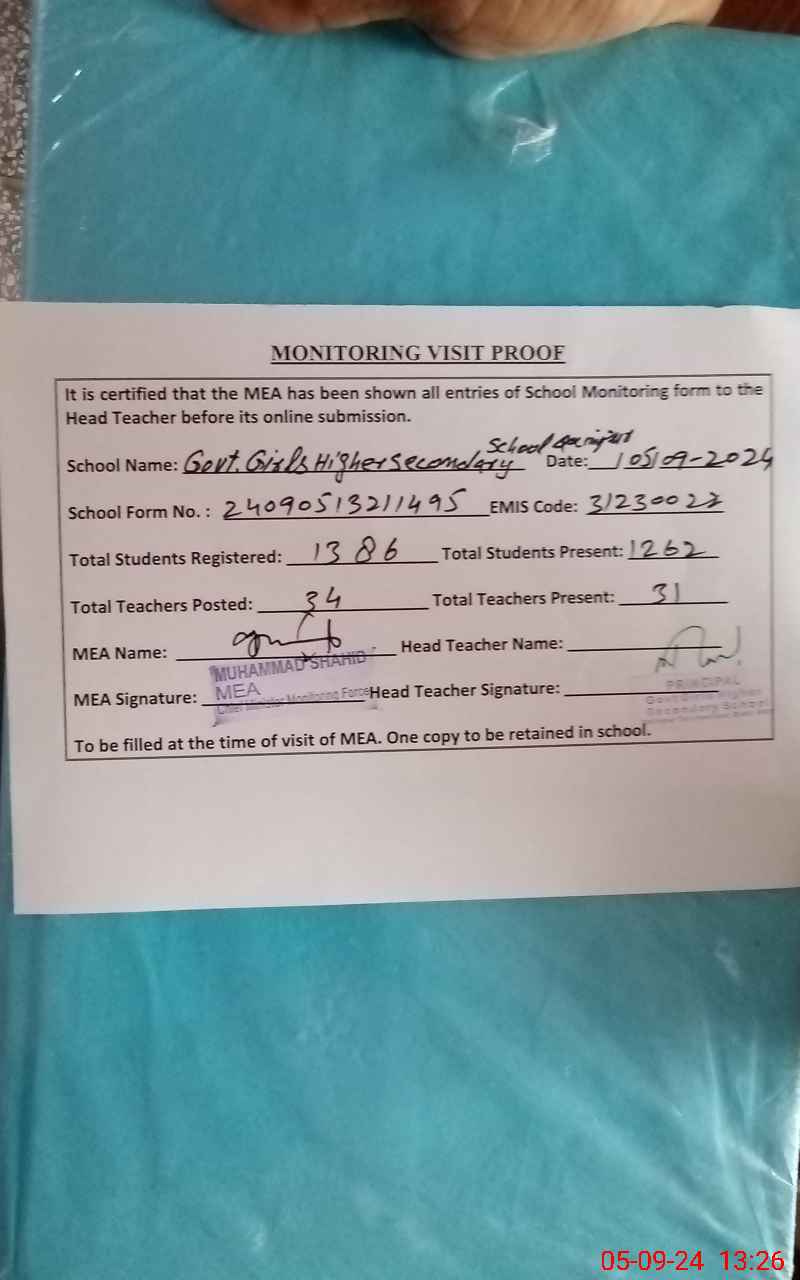 MONITORING VISIT PROOF
It is certified that the MEA has been shown all entries of School Monitoring form to the
Head Teacher before its online submission.
School Name: Govt. Girls Higher Secondary School Date: 05/09-2024
School Form No. : 24090513211495 EMIS Code: 31230027
Total Students Registered: 1386 Total Students Present: 1262
Total Teachers Posted: 34 Total Teachers Present: 31
MEA Name: Head Teacher Name:
MUHAMMAD SHAHID
MEA Signature: MEA Head Teacher Signature:
Chief Minister Monitoring Force
PRINCIPAL
Govt. Girls Higher
Secondary School
To be filled at the time of visit of MEA. One copy to be retained in school.
05-09-24 13:26